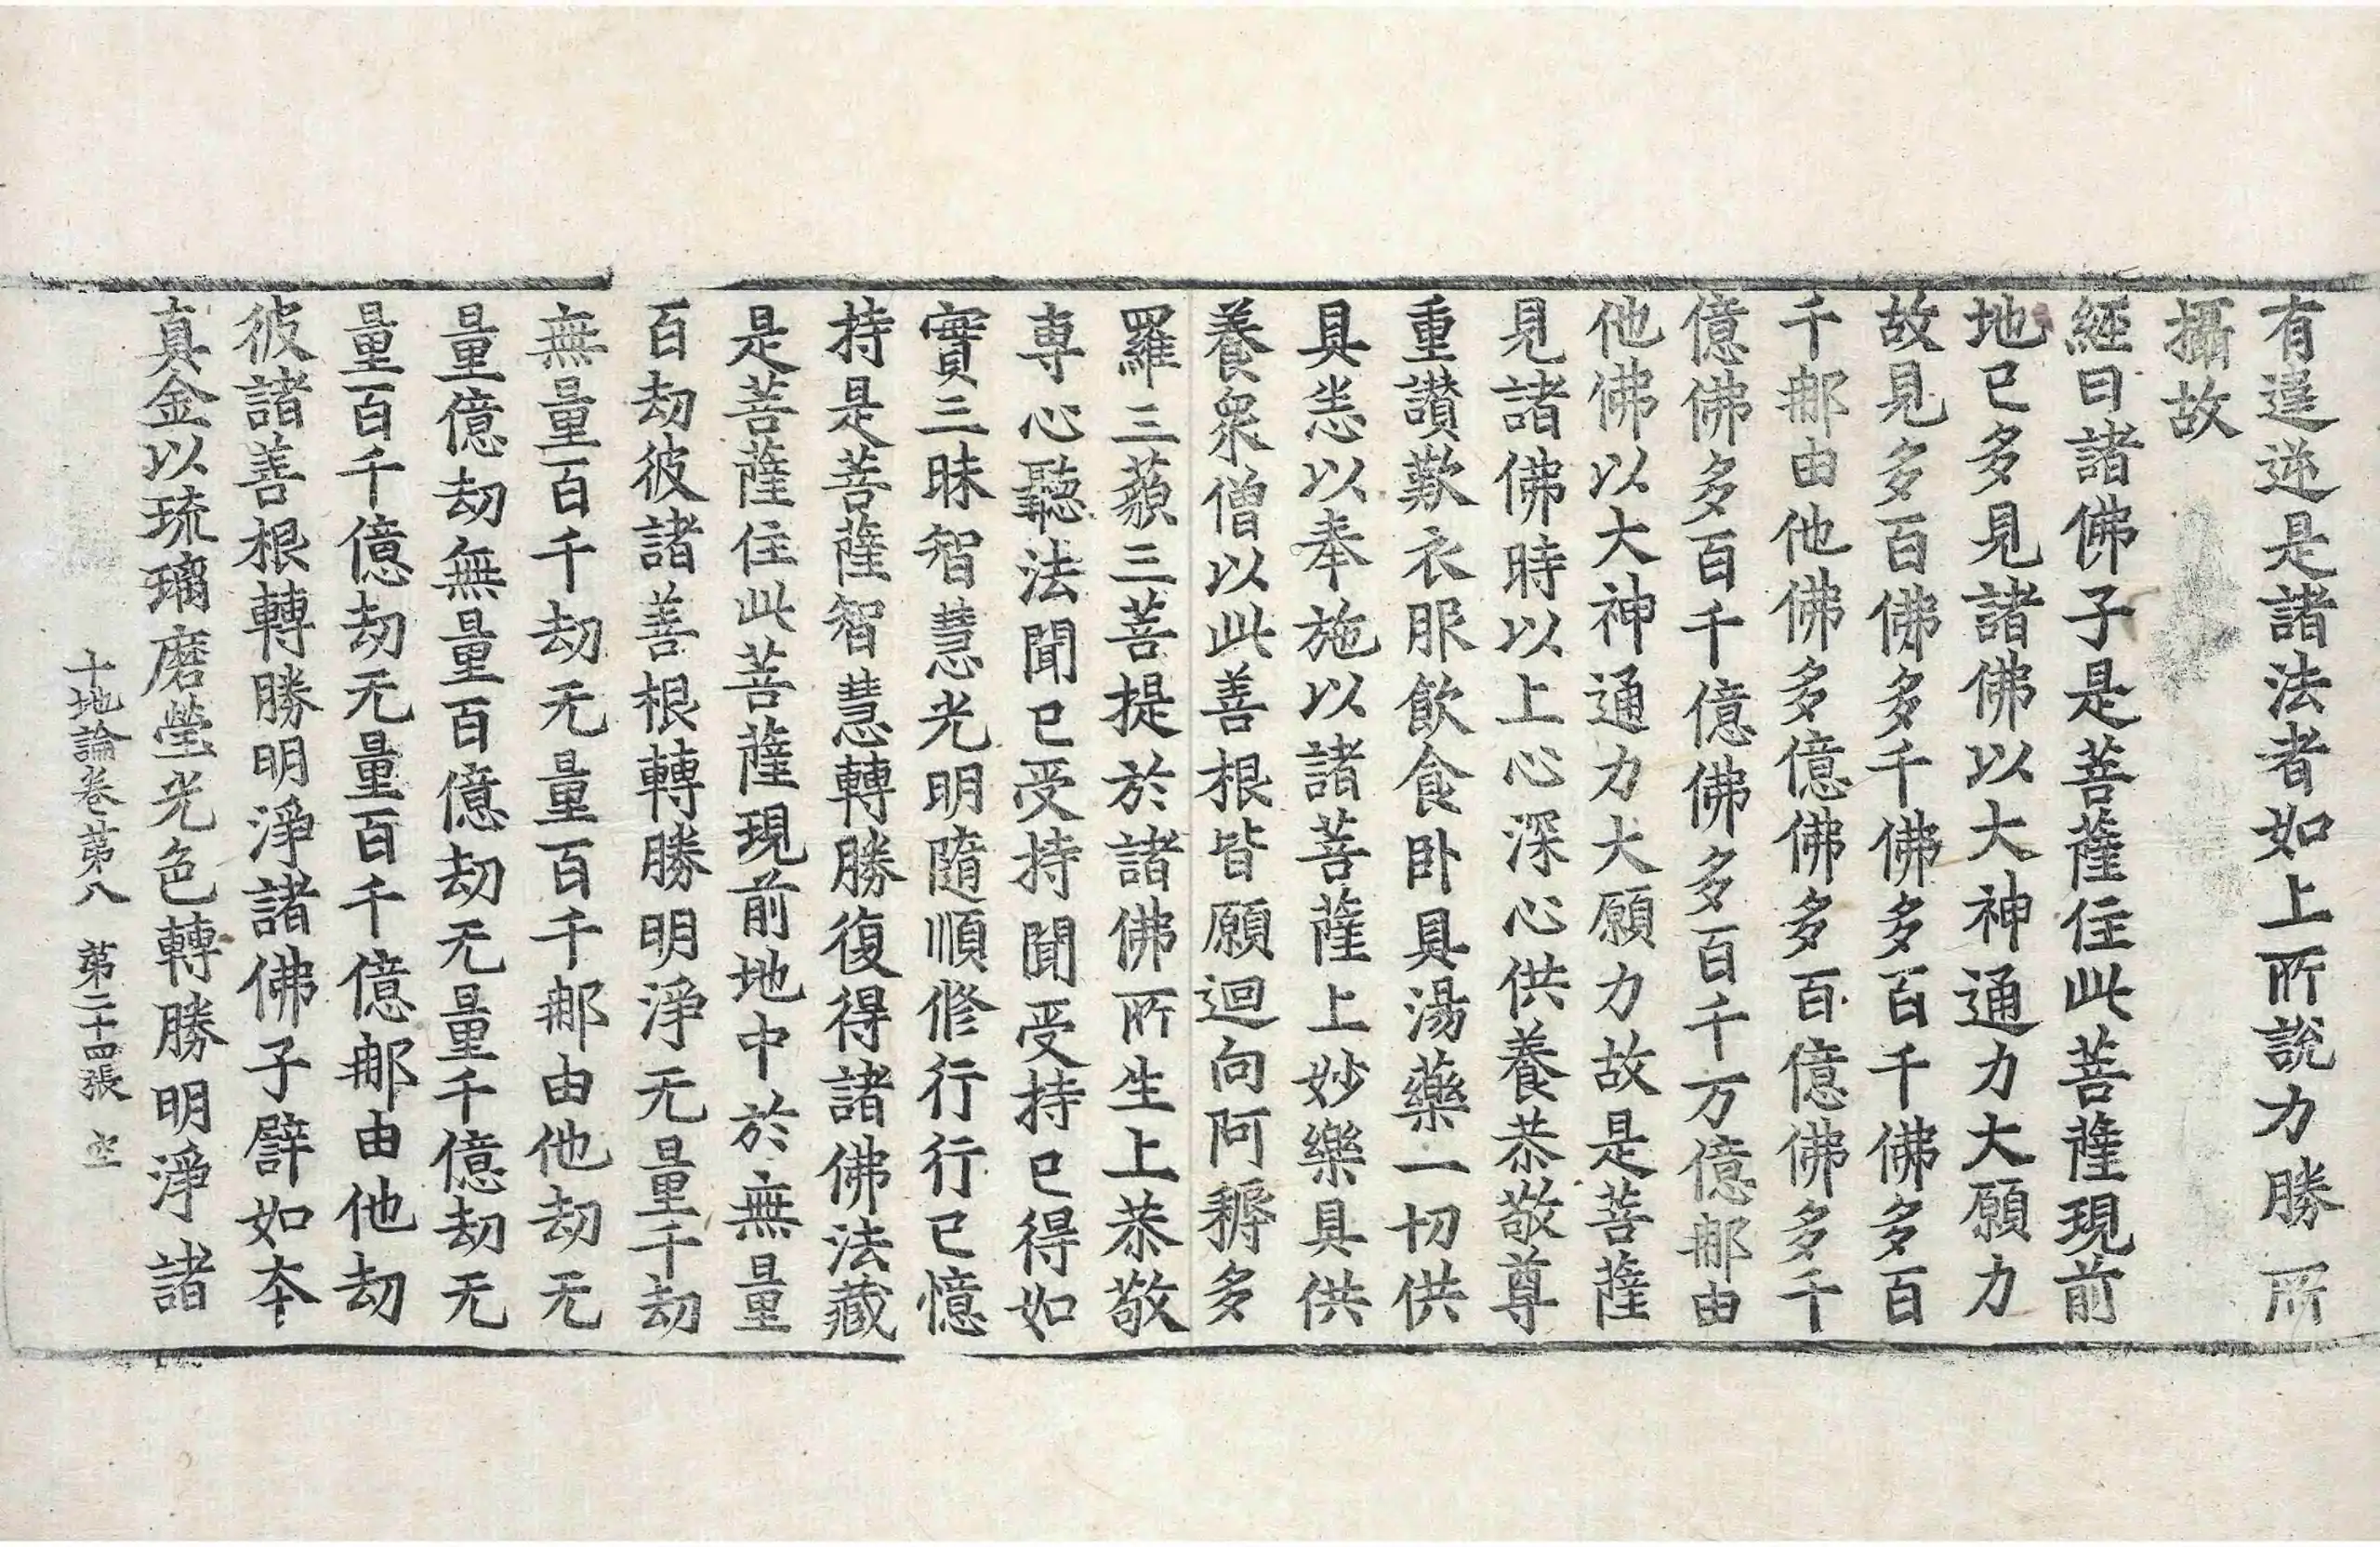 有違逆是諸法者如上所說力勝所
攝故
經曰諸佛子是菩薩住此菩薩現前
地已多見諸佛以大神通力大願力
故見多百佛多千佛多百千佛多百
千那由他佛多億佛多百億佛多千
億佛多百千億佛多百千万億那由
他佛以大神通力大願力故是菩薩
見諸佛時以上心深心供養恭敬尊
重讚歎衣服飲食卧具湯藥一切供
具悉以奉施以諸菩薩上妙樂具供
養衆僧以此善根皆願迴向阿耨多
羅三藐三菩提於諸佛所生上恭敬
専心聽法聞已受持聞受持已得如
實三昧智慧光明隨順修行行已憶
持是菩薩智慧轉勝復得諸佛法藏
是菩薩住此菩薩現前地中於無量
百劫彼諸善根轉勝明淨无量千劫
無量百千劫无量百千那由他劫无
量億劫無量百億劫无量千億劫无
量百千億劫无量百千億那由他劫
彼諸善根轉勝明淨諸佛子譬如夲
真金以琉璃磨瑩光色轉勝明淨諸
十地論卷第八 第二十四張